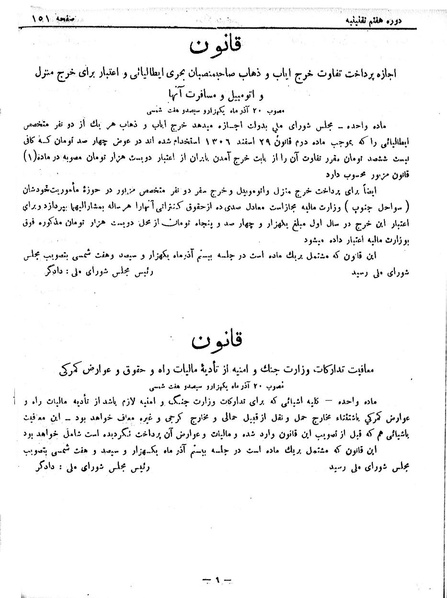 دوره هفتم تقنینیه صفحه ۱۵۱
قانون
اجازه پرداخت تفاوت خرج ایاب و ذهاب صاحبمنصبان بحری ایطالیائی و اعتبار برای خرج منزل
و اتومبیل و مسافرت آنها
مصوب ۲۰ آذر ماه یکهزار و سیصد و هفت شمسی
ماده واحده ــ مجلس شورای ملی بدولت اجازه میدهد خرج ایاب و ذهاب هر یک از دو نفر متخصص
ایطالیائی را که بموجب ماده دوم قانون ۲۹ اسفند ۱۳۰۶ استخدام شده اند در عوض چهار صد تومان که کافی
نیست ششصد تومان مقرر تفاوت آن را از بابت خرج آمدن بایران از اعتبار دویست هزار تومان مصوبه در ماده (۱)
قانون مزبور محسوب دارد
ایضاً برای پرداخت خرج منزل واتومبیل و خرج سفر دو نفر متخصص مزبور در حوزهٔ مأموریت خودشان
( سواحل جنوب ) وزارت مالیه مجاز است معادل صدی ده از حقوق کنتراتی آنها را هر ساله بمشارالیهما بپردازد و برای
اعتبار این خرج در سال اول مبلغ یکهزار و چهار صد و پنجاه تومان از محل دویست هزار تومان مذکوره فوق
بوزارت مالیه اعتبار داده میشود
این قانون که مشتمل بریک ماده است در جلسه بیستم آذر ماه یکهزار و سیصد و هفت شمسی بتصویب مجلس
شورای ملی رسید رئیس مجلس شورای ملی : دادگر
قانون
معافیت تدارکات وزارت جنگ و امنیه از تأدیهٔ مالیات راه و حقوق و عوارض گمرکی
مصوب ۲۰ آذر ماه یکهزار و سیصد و هفت شمسی
ماده واحده ــ کلیه اشیائی که برای تدارکات وزارت جنگ و امنیه لازم باشد از تأدیه مالیات راه و
عوارض گمرکی باستثناء مخارج حمل و نقل از قبیل حمالی و مخارج کرجی و غیره معاف خواهد بود ــ این معافیت
باشیائی هم که قبل از تصویب این قانون وارد شده و مالیات و عوارض آن پرداخت نگردیده است شامل خواهد بود
این قانون که مشتمل بریک ماده است در جلسه بیستم آذر ماه یکهزار و سیصد و هفت شمسی بتصویب
مجلس شورای ملی رسید رئیس مجلس شورای ملی : دادگر
ــ ۹ ــ